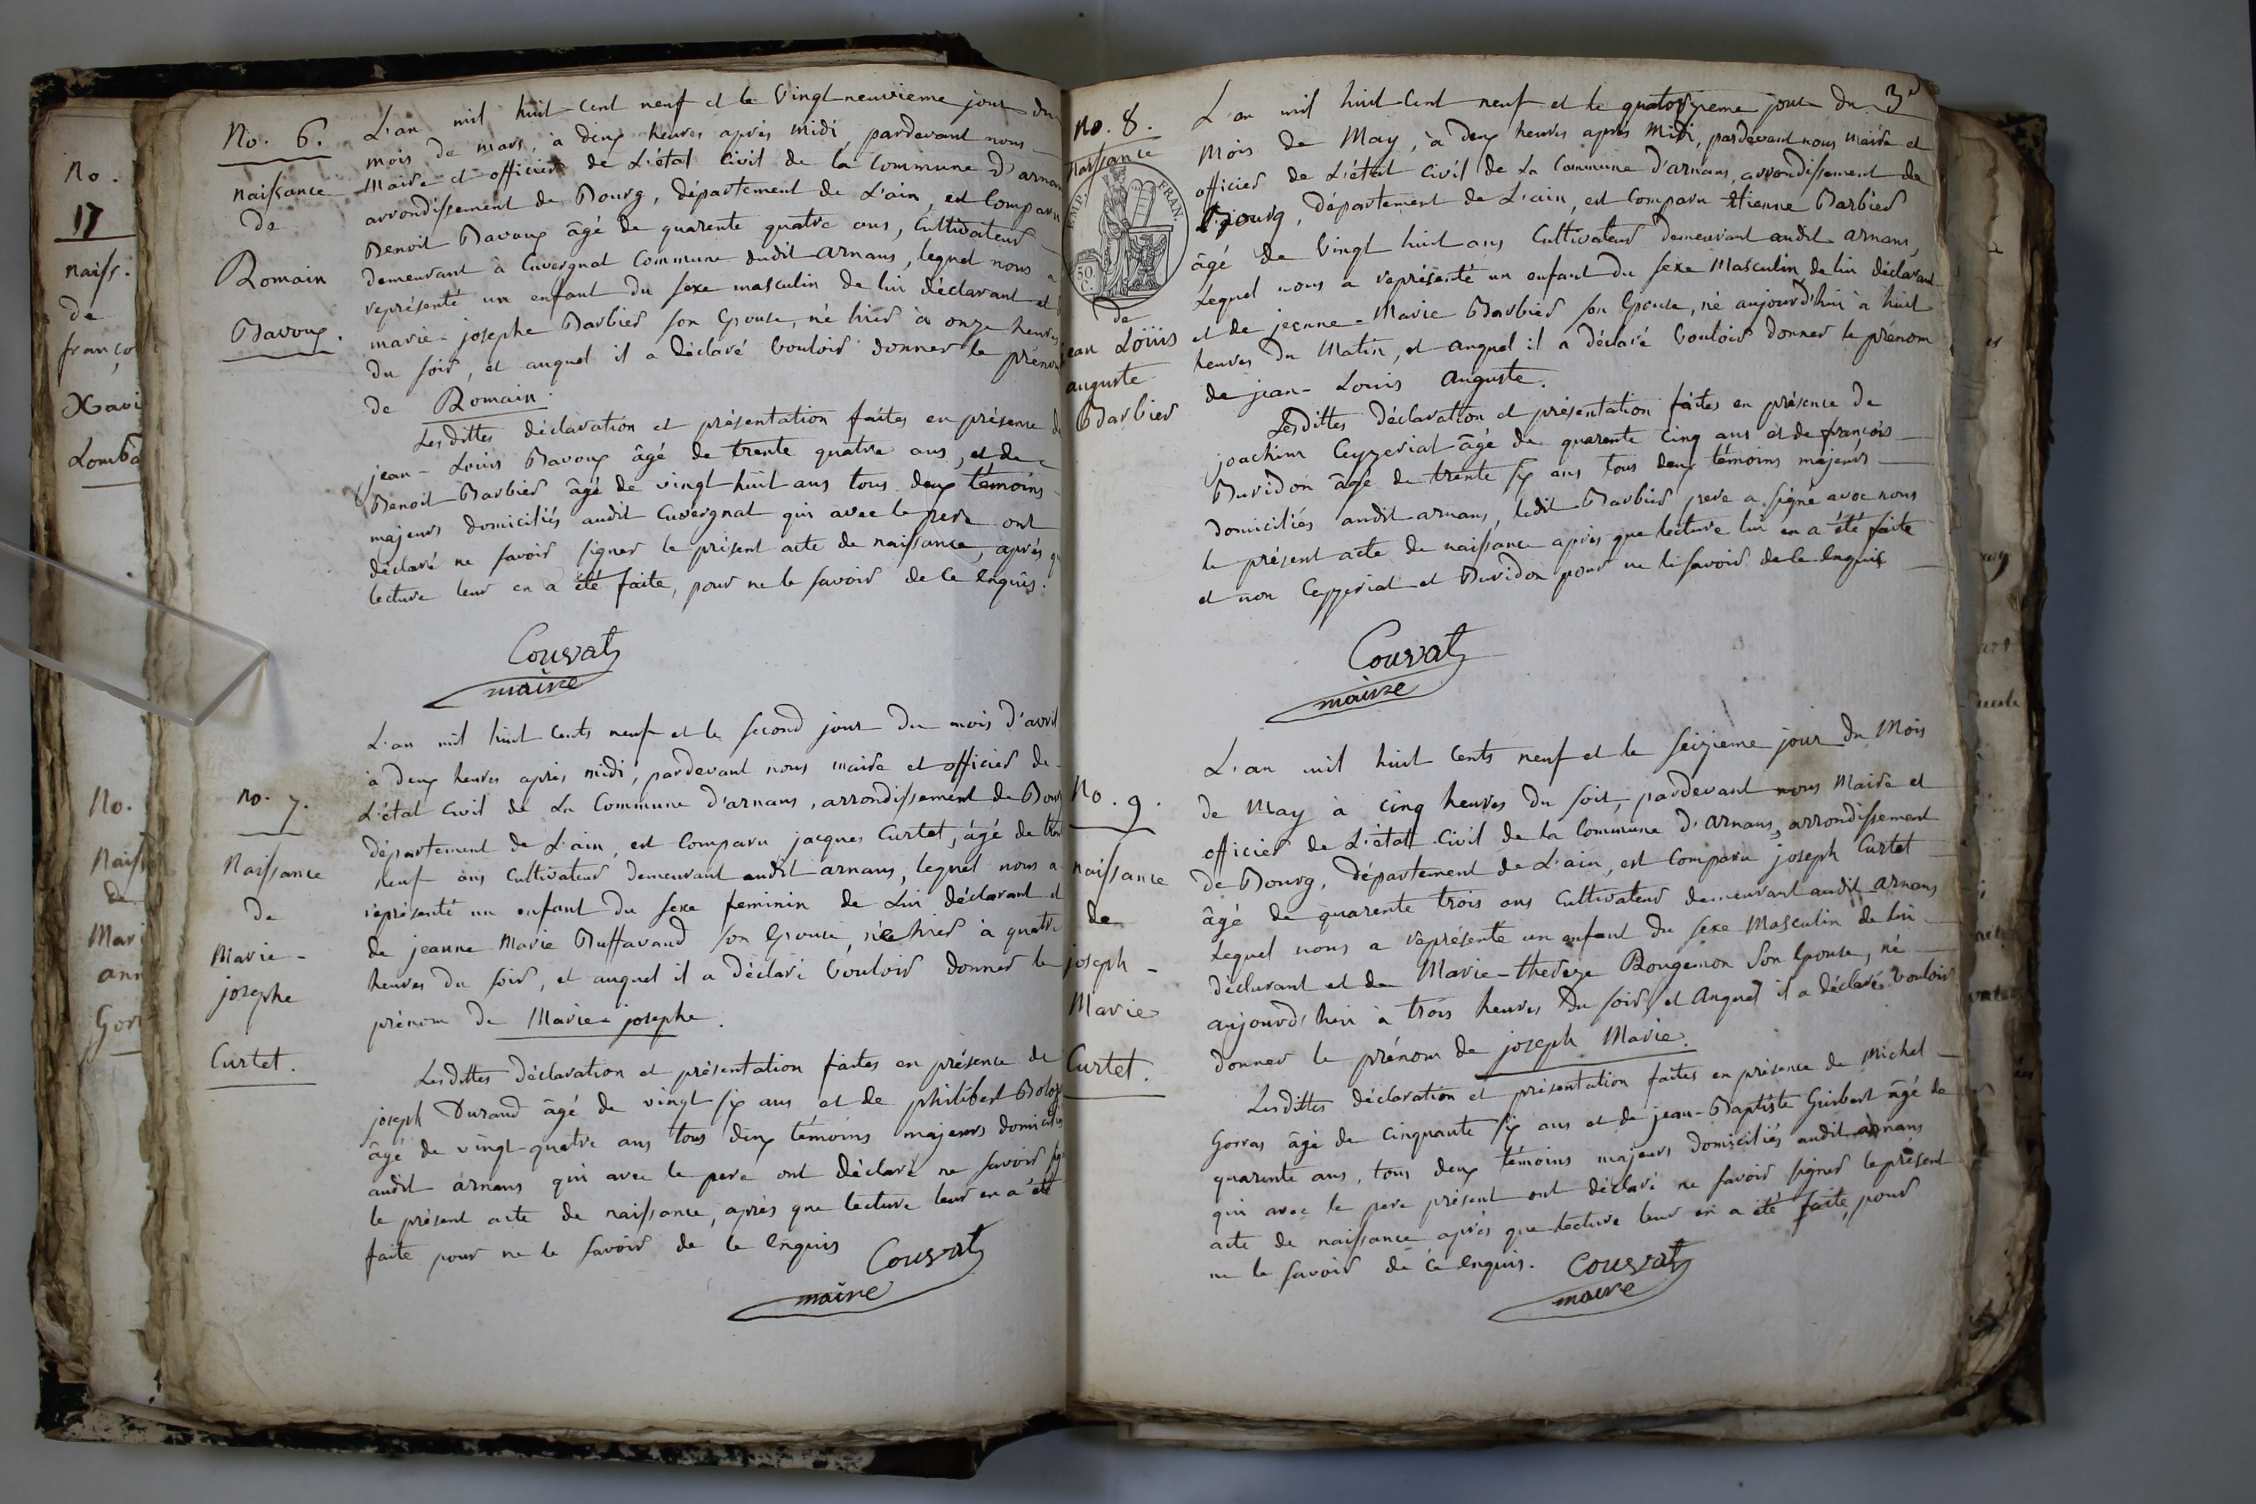 No.
17
naiss.
de
franço
Xavi
Lomba
No.
Naiss
de
Mari
ann
Gorr
No. 6.
naissance
de
Romain
Bavoux.
L'an mil huit cent neuf et le vingt neuvieme jour du
mois de mars, à deux heures après midi, pardevant nous
Maire et officier de L'état Civil de la Commune d'arnans
arrondissement de Bourg, département de L'ain, est Comparu
Benoit Bavoux âgé de quarente quatre ans, Cultivateur
demeurant à Cuvergnat Commune dudit arnans, lequel nous a
représenté un enfant du sexe masculin de lui déclarant et
marie-josephe Barbier son Epouse, né hier à onze heures
du soir, et auquel il a déclaré vouloir donner le prénom
de Romain.
Lesdittes déclaration et présentation faites en présence de
jean-Louis Bavoux âgé de trente quatre ans, et de
Benoit Barbier âgé de vingt huit ans tous deux témoins
majeurs domiciliés audit Cuvergnat qui avec le pere ont
déclaré ne savoir signer le présent acte de naissance, après q
lecture leur en a été faite, pour ne le savoir de ce Enquis.
Couvat
maire
no. 7.
Naissance
de
Marie-
josephe
Curtet.
L'an mil huit Cents neuf et le second jour du mois d'avril
à deux heures après midi, pardevant nous maire et officier de
L'état Civil de La Commune d'arnans, arrondissement de Bourg
département de L'ain, est Comparu jacques Curtet, âgé de tren
neuf ans Cultivateur demeurant audit arnans, lequel nous a
réprésenté un enfant du sexe feminin de Lui déclarant et
de jeanne Marie Buffavand son Epouse, née hier à quatre
heures du soir, et auquel il a déclaré vouloir donner le
prénom de Marie-josephe.
Lesdittes déclaration et présentation faites en présence de
joseph Durand âgé de vingt six ans et de philibert
âgé de vingt-quatre ans tous deux témoins majeurs domiciliés
audit arnans qui avec le pere ont déclaré ne savoir sig
le présent acte de naissance, après que lecture leur en a été
faite pour ne le savoir de ce Enquis
Couvat
maire
3e
no. 8.
Naissance
EMP. FRAN.
50 C.
de
jean Loüis
auguste
Barbier
L'an mil huit cent neuf et le quatorzieme jour du
Mois de May, à deux heures après Midi, pardevant nous maire et
officier de L'état Civil de La Commune d'arnans, arrondissement de
Bourg, département de L'ain, est Comparu Etienne Barbier
âgé de vingt huit ans Cultivateur demeurant audit arnans,
Lequel nous a représenté un enfant du sexe Masculin de lui déclarant
et de jeanne-Marie Barbier son Epouse, né aujourd'hui à huit
heures du Matin, et auquel il a déclaré vouloir donner le prénom
de jean-Louis Auguste.
Lesdittes déclaration et présentation faites en présence de
joachim Ceyzeriat âgé de quarente cinq ans et de françois
Buridon âgé de trente six ans tous deux témoins majeurs
domiciliés audit arnans, ledit Barbier pere a signé avec nous
le présent acte de naissance après que lecture lui en a été faite
et non Ceyzeriat et Buridon pour ne le savoir de ce enquis
Couvat
maire
No. 9.
Naissance
de
joseph-
Marie
Curtet.
L'an mil huit Cents neuf et le seizieme jour du Mois
de May à cinq heures du soir, pardevant nous Maire et
officier de L'état Civil de la Commune d'arnans, arrondissement
de Bourg, département de L'ain, est Comparu joseph Curtet
âgé de quarente trois ans Cultivateur demeurant audit arnans
Lequel nous a représenté un enfant du sexe Masculin de lui
déclarant et de Marie-thereze Rougemon Son Epouse, né
aujourd'hui à trois heures du soir, et Auquel il a déclaré vouloir
donner le prénom de joseph Marie.
Lesdittes déclaration et présentation faites en présence de Michel
Gorras âgé de cinquante six ans et de jean-Baptiste Guibert âgé de
quarente ans, tous deux témoins majeurs domiciliés audit arnans
qui avec le pere présent ont déclaré ne savoir signer le présent
acte de naissance après que lecture leur en a été faite, pour
ne le savoir de ce enquis.
Couvat
maire